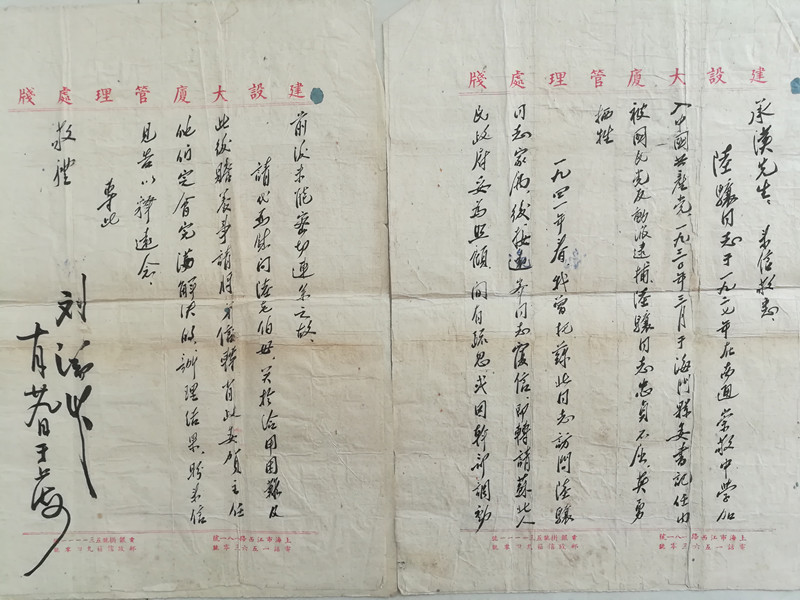 建設大廈管理處牋
承漢先生，来信敬悉，
陸驤同志于一九二七年在南通崇敬中学加
入中國共產党，一九三〇年三月于海門縣委書記任内
被國民党反動派逮捕，陸驤同志忠貞不屈，英勇
犧牲
一九四一年春，我曾托蘇北同志訪問陸驤
同志家屬，後接同志覆信，即轉請蘇北人
民政府妥為照顧，間有疏忽，或因幹部調動
上海市江西路一八一號
電話一五六三零號
建設大廈管理處牋
前後未能密切連系之故。
請代為慰問陸老伯母，关於治用困難及
此後贍养事請將弟信轉肖政委賀主任
他们定會完滿解决的，辦理结果，盼来信
見告以釋遠念，
專此
敬禮
刘
十月廿九日于上海
上海市江西路一八一號
電話一五六三零號